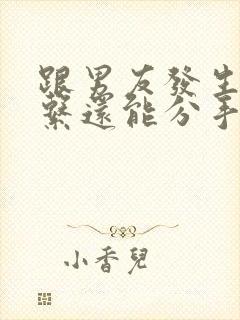 跟男友發生
繫還能分手
小香兒